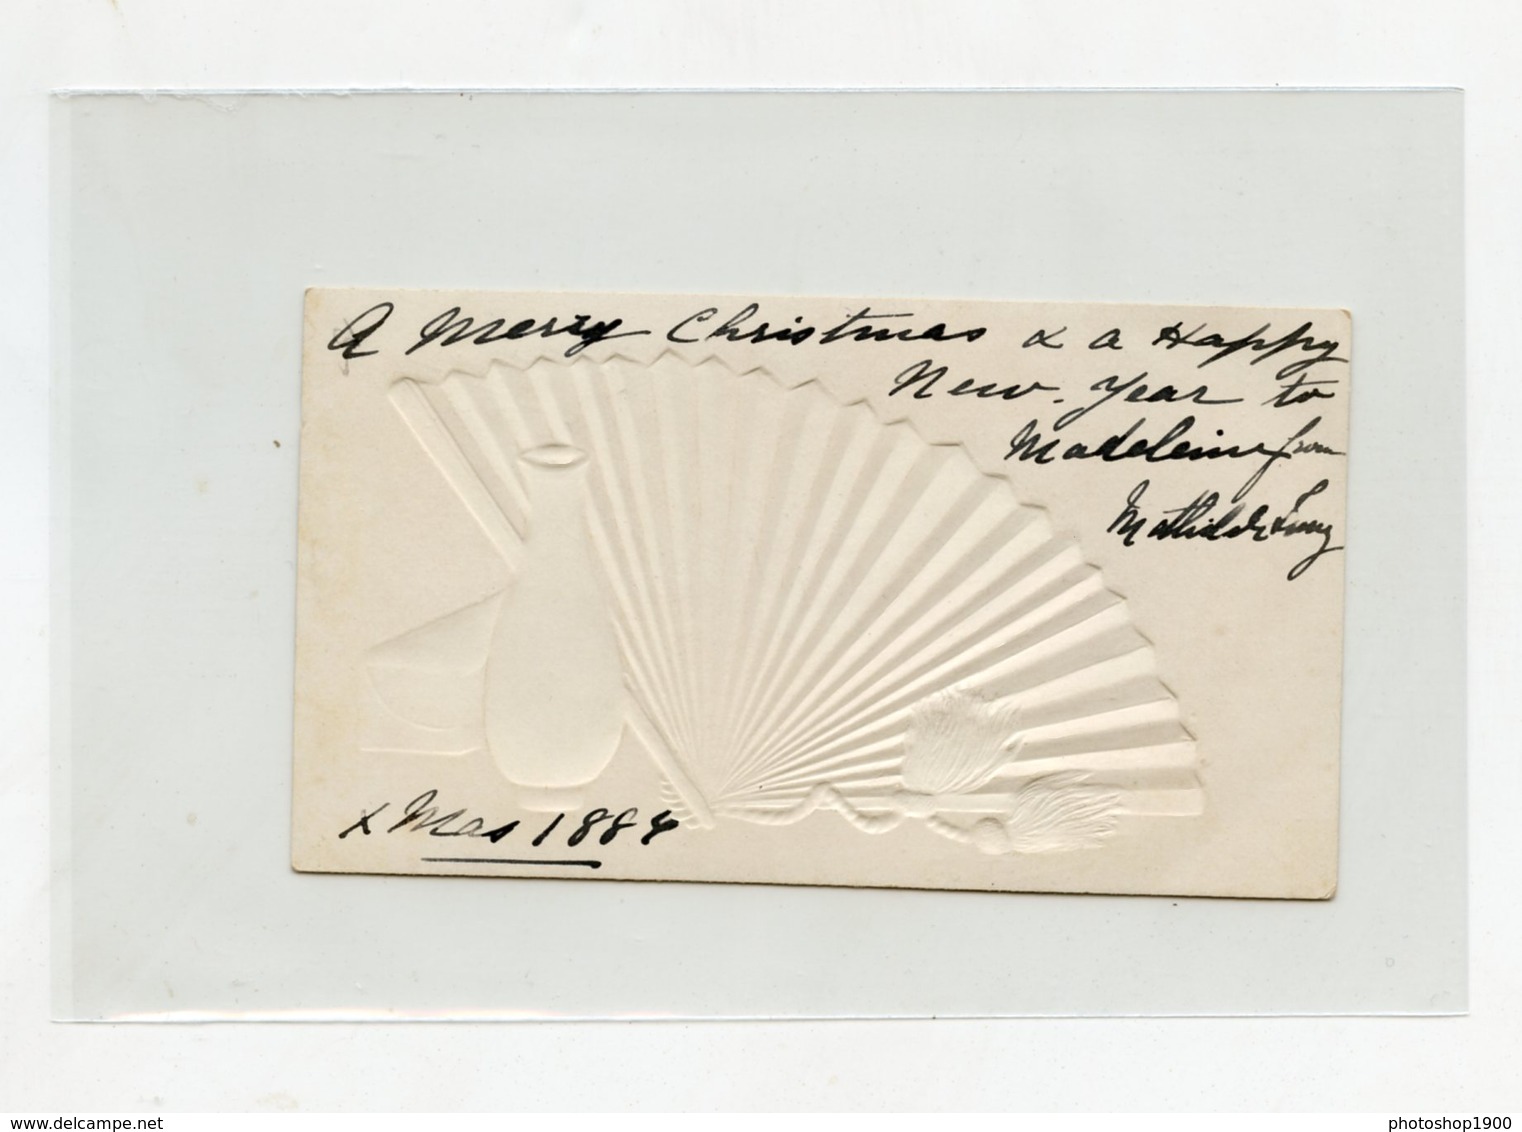 A Merry Christmas & a Happy
New Year to
Madeleine from
Mathilde
X Mas 1884
www.delcampe.net
photoshop1900